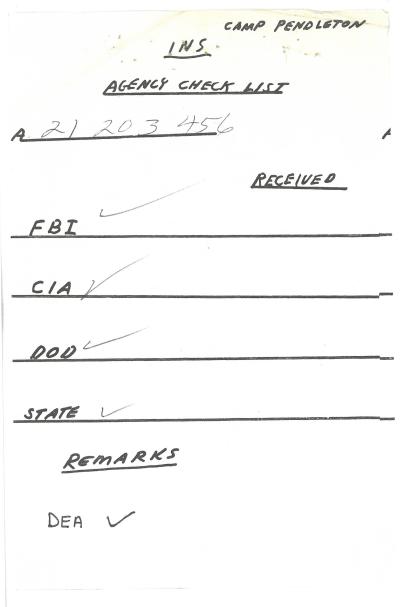 CAMP PENDLETON
INS
AGENCY CHECK LIST
A 21 203 456
RECEIVED
FBI ✓
CIA ✓
DOD ✓
STATE ✓
REMARKS
DEA ✓